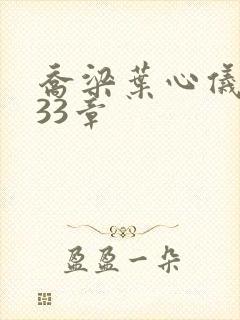 乔梁葉心儀
33章
盈盈一朵